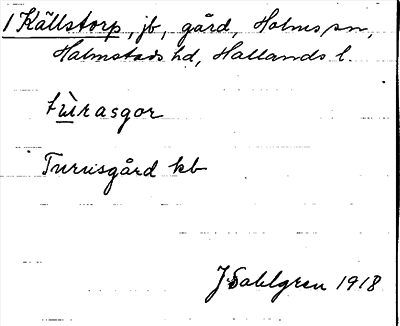 1 Källstorp, jb, gård, Holms sn,
Halmstads hd, Hallands l.
tùrasgor
Turusgård kb
J Sahlgren 1918